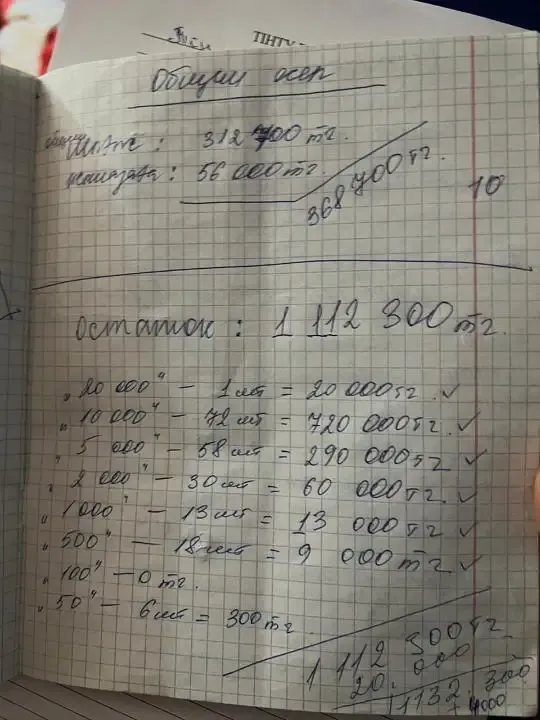 ПНТУ
Общий осер
312 700 тг.
56 000 тг.
368 700 тг.
10
Остаток : 1 112 300 тг.
„20 000“ — 1 шт = 20 000 тг. ✓
„10 000“ — 72 шт = 720 000 тг. ✓
„5 000“ — 58 шт = 290 000 тг ✓
„2 000“ — 30 шт = 60 000 тг. ✓
„1000“ — 13 шт = 13 000 тг ✓
„500“ — 18 шт = 9 000 тг ✓
„100“ — 0 тг.
„50“ — 6 шт = 300 тг
1 112 300 тг
20.000
1132.300
+ 4000